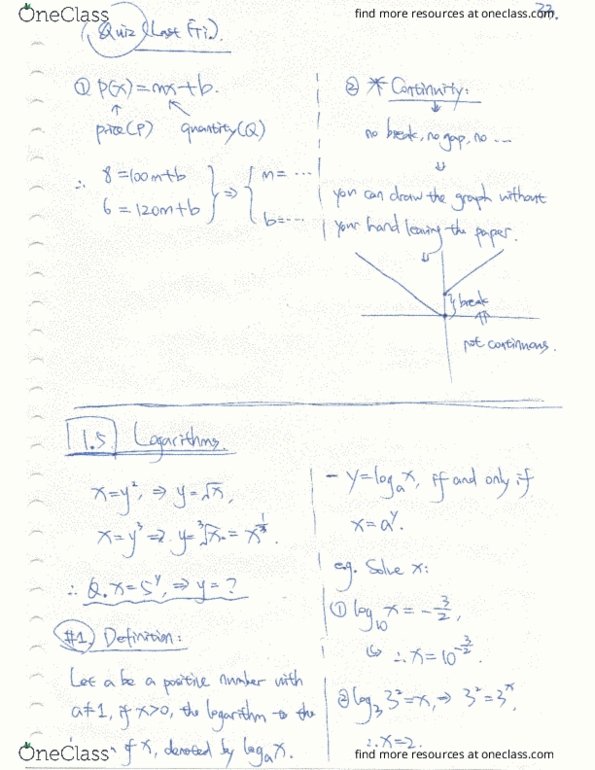 OneClass
find more resources at oneclass.com
23.
Quiz (Last Fri.).
① P(x)=mx+b.
price(P) quantity(Q)
∴ 8=100m+b
6=120m+b
⇒ { m= ...
b=...
② * Continuity:
no break, no gap, no ...
you can draw the graph without
your hand leaving the paper.
break
not continuous.
1.5 Logarithms.
x=y², ⇒ y=√x,
x=y³ ⇒ y=³√x = x^(1/3).
∴ Q. x=5^y, ⇒ y=?
#1. Definition:
Let a be a positive number with
a≠1, if x>0, the logarithm to the
of x, denoted by logₐx.
- y=logₐx, iff and only if
x=a^y.
e.g. Solve x:
① log₁₀x=-3/2,
∴ x=10^(-3/2).
② log₃3²=x, ⇒ 3²=3^x,
∴ x=2.
OneClass
find more resources at oneclass.com